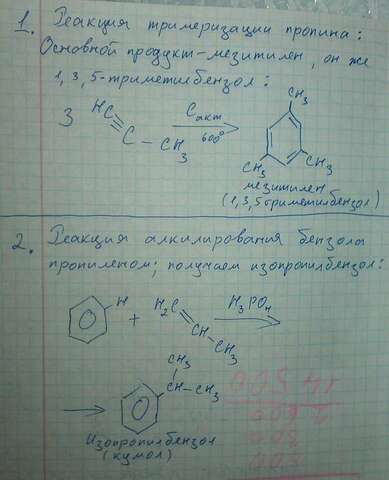 1. Реакция тримеризации пропина:
Основной продукт - мезитилен, он же
1, 3, 5-триметилбензол:
3 HC≡C-CH3 Cакт 600° CH3 CH3 CH3
мезитилен
(1,3,5-триметилбензол)
2. Реакция алкилирования бензола
пропиленом; получаем изопропилбензол:
H + H2C=CH-CH3 H3PO4
CH3
CH-CH3
Изопропилбензол
(кумол)